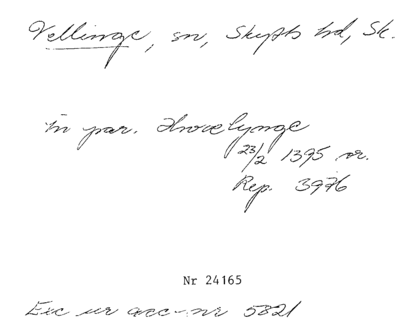 Vellinge, sn, Skytts hd, Sk.
in par. Hwælynge
23/2 1395 or.
Rep. 3976
Nr 24165
Exc ur acc-nr 5821